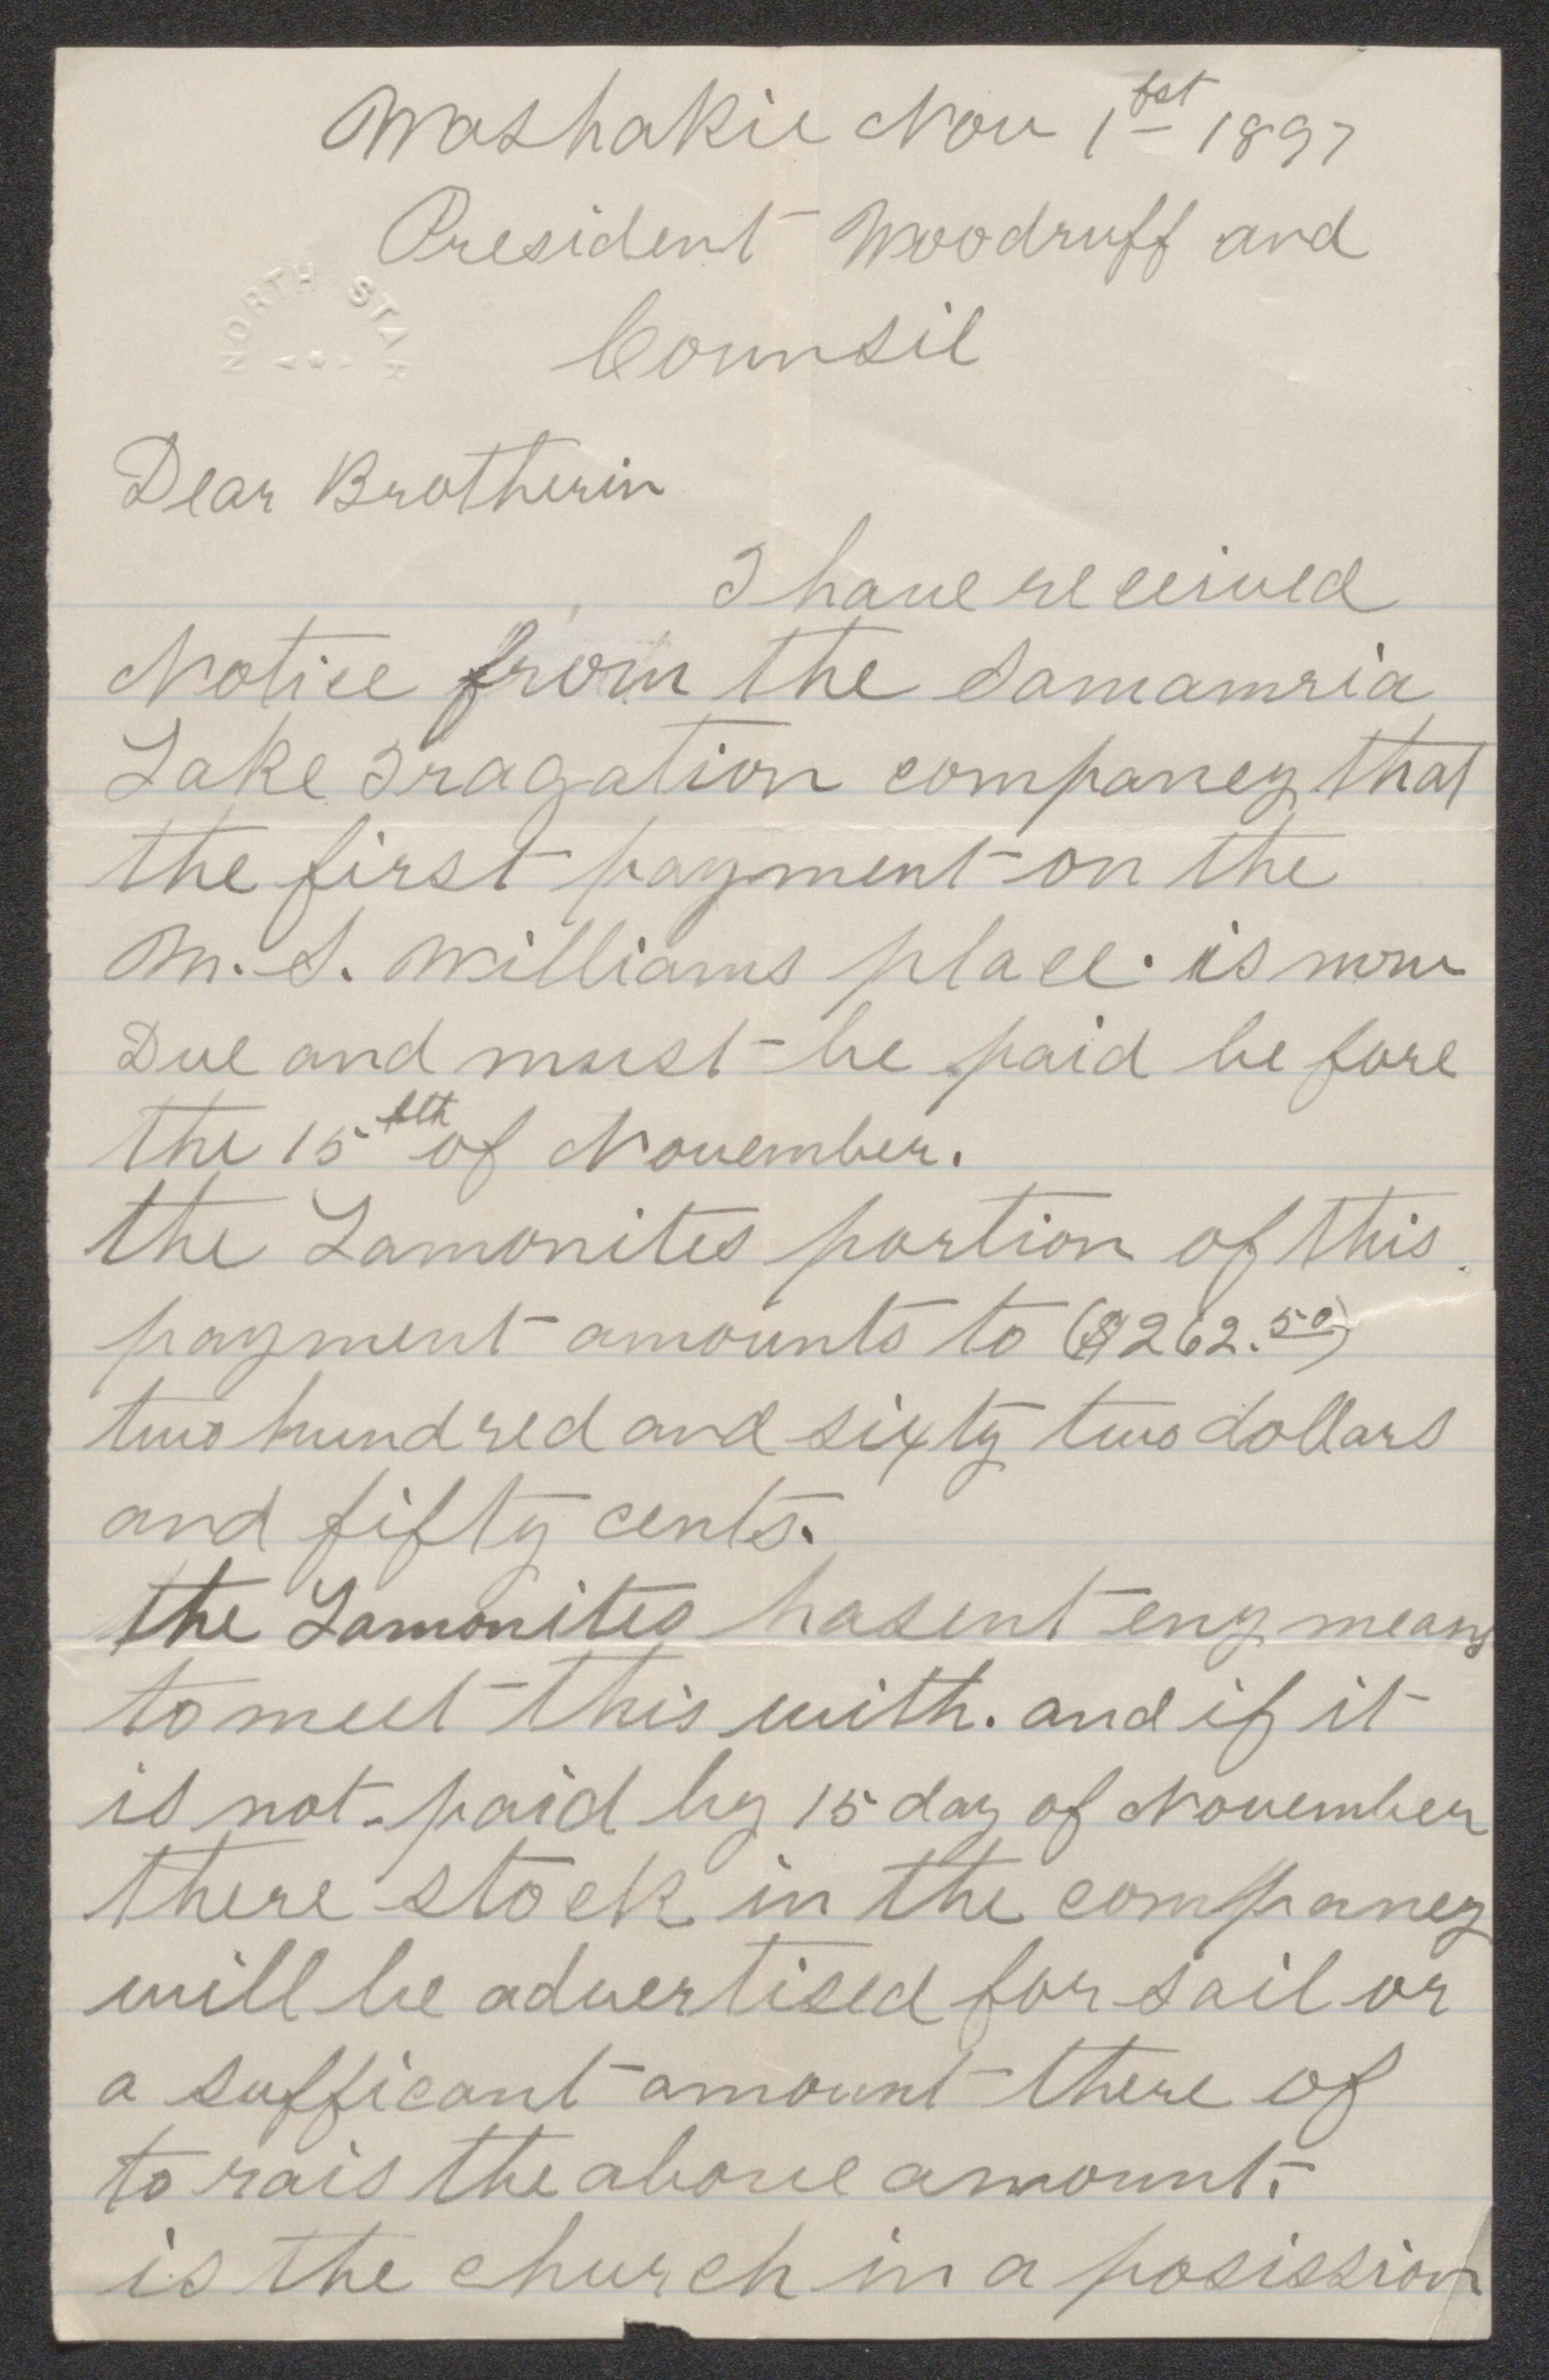 Washakie Nov 1fst 1897
President Woodruff and
Counsil
NORTH STAR
Dear Brotherin
I have received
Notice from the Samamria
Lake Iragation companey that
the first payment on the
M. S. Williams place. is now
Due and must be paid be fore
the 15th of November.
the Lamonites portion of this
payment amounts to ($262.50)
two hundred and sixty two dollars
and fifty cents.
the Lamonites hasent eny means
to meet this with. and if it
is not paid by 15 day of November
there stock in the companey
will be advertised for sail or
a sufficant amount there of
to rais the above amount.
is the church in a posission